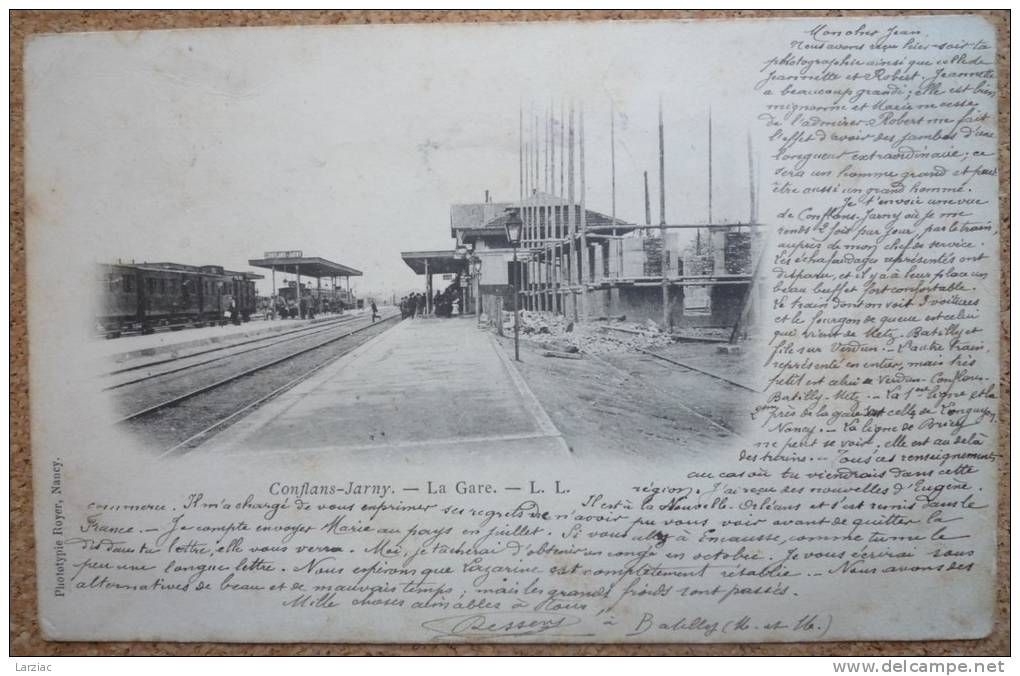 Mon cher Jean,
Nous avons reçu hier-soir ta
photographie ainsi que celle de
Jeannette et Robert. Jeannette
a beaucoup grandi; elle est bien
mignonne et Marie ne cesse
de l'admirer. Robert me fait
l'effet d'avoir des jambes d'une
longueur extraordinaire; ce
sera un homme grand et peut
être aussi un grand homme.
Je t'envoie une vue
de Conflans-Jarny où je me
rends 2 fois par jour, par le train,
auprès de mon chef de service.
Les échafaudages représentés ont
disparu, et il y a à leur place un
beau buffet fort confortable.
Le train dont on voit 3 voitures
et le fourgon de queue est celui
qui vient de Metz. Batilly et
file sur Verdun. - L'autre train,
représenté en entier, mais très
petit est celui de Verdun-Conflans
Batilly-Metz. - La 1ère ligne et la
2ème près de la gare est celle de Longuyon
Nancy. - La ligne de Briey
ne peut se voir, elle est au delà
des trains. - Tous ces renseignements
au cas où tu viendrais dans cette
Conflans-Jarny. — La Gare. — L. L.
région. J'ai reçu des nouvelles d'Eugène.
Il est à la Nouvelle-Orléans et s'est remis dans le
commerce. Il m'a chargé de vous exprimer ses regrets de n'avoir pu vous voir avant de quitter la
France. - Je compte envoyer Marie au pays en juillet. Si vous allez à comme tu me le
dis dans ta lettre, elle vous verra. Moi, je tâcherai d'obtenir un congé en octobre. Je vous écrirai sous
peu une longue lettre. Nous espérons que Lazarine est complètement rétablie. - Nous avons des
alternatives de beau et de mauvais temps; mais les grands froids sont passés.
Mille choses aimables à tous
à Batilly (M.-et-M.)
Phototypie Royer, Nancy.
Larziac
www.delcampe.net